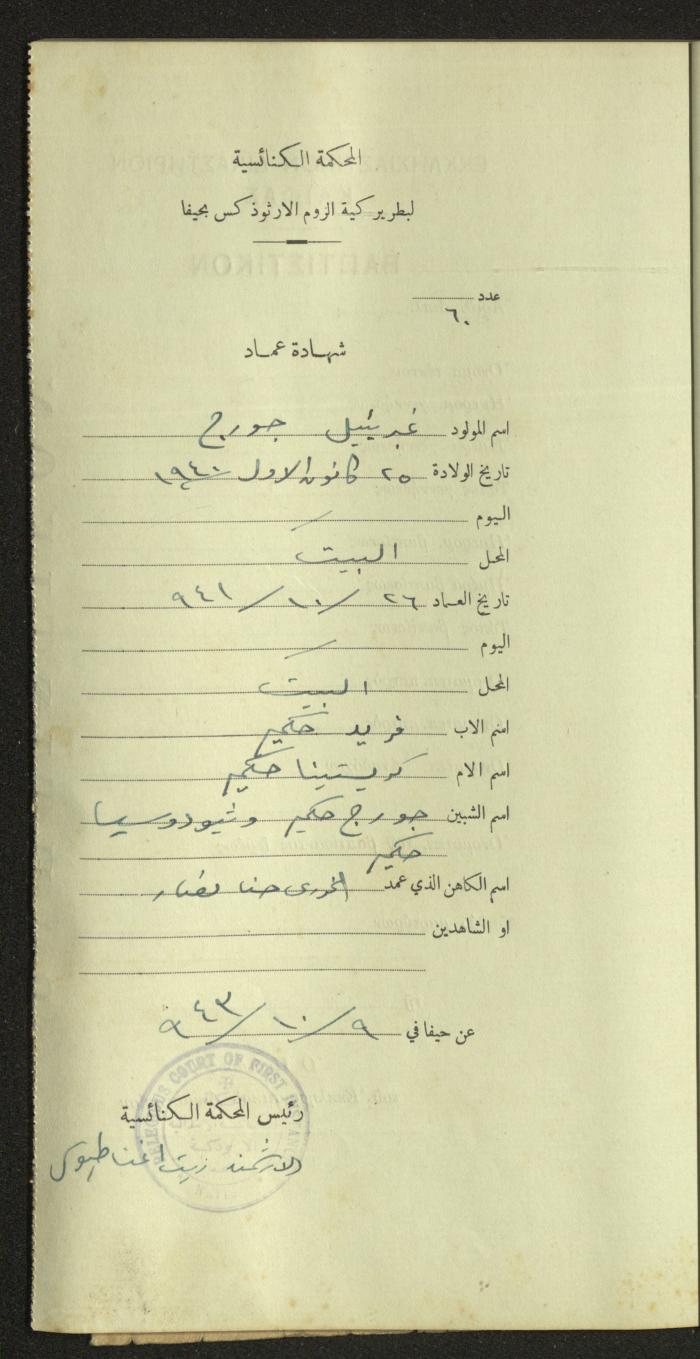 المحكمة الكنائسية
لبطريركية الروم الارثوذكس بحيفا
عدد
٦٠
شهادة عماد
اسم المولود غبريئيل جورج
تاريخ الولادة ٢٥ كانون الاول ١٩٤٠
اليوم
المحل البيت
تاريخ العماد ٢٦/١٠/٩٤١
اليوم
المحل البيت
اسم الاب فريد حكيم
اسم الام كريستينا حكيم
اسم الشبين جورج حكيم وثيودوسيا
حكيم
اسم الكاهن الذي عمد الخوري حنا
او الشاهدين
عن حيفا في ٩/١٠/٩٤٣
COURT OF FIRST
رئيس المحكمة الكنائسية
الارشمندريت اغناطيوس